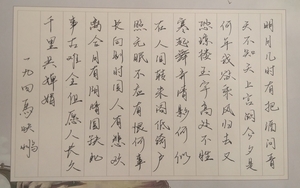 明月几时有把酒问青
天不知天上宫阙今夕是
何年我欲乘风归去又
恐琼楼玉宇高处不胜
寒起舞弄清影何似
在人间转朱阁低绮户
照无眠不应有恨何事
长向别时圆人有悲欢
离合月有阴晴圆缺此
事古难全但愿人长久
千里共婵娟
一九四